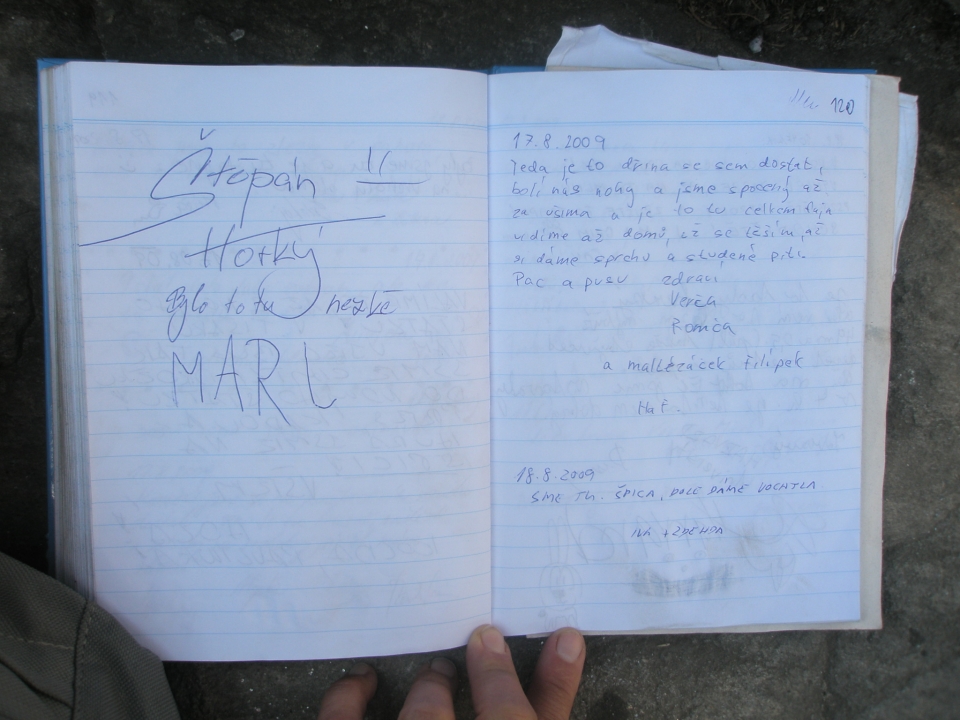 Štěpán 11
Horký
Bylo to tu hezké
MARL
120
17.8.2009
Teda je to dřina se sem dostat,
bolí nás nohy a jsme spocený až
za ušima a je to tu celkem fajn
vidíme až domů, už se těším, až
si dáme sprchu a studené pití.
Pac a pusu zdraví
Verča
Romča
a malý Filípek
Haf.
18.8.2009
SME TU. ŠPICA, DOLE DÁME
IVA + ZDENDA